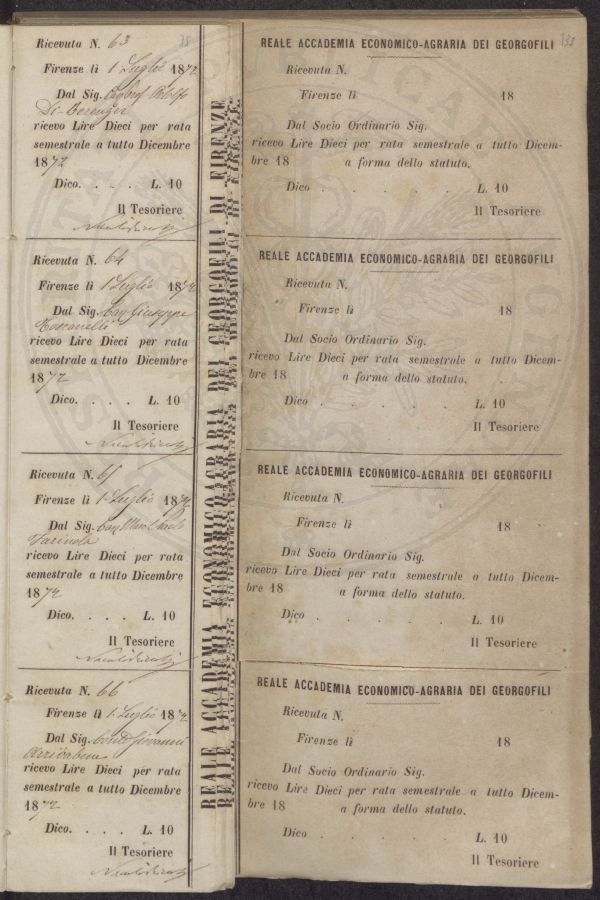 Ricevuta N. 63
Firenze lì 1 Luglio 1872
Dal Sig.
Di Berenger
ricevo Lire Dieci per rata
semestrale a tutto Dicembre
1872
Dico. . . . L. 10
Il Tesoriere
Ricevuta N. 64
Firenze lì 1 Luglio 1872
Dal Sig. Cav Giuseppe
Toscanelli
ricevo Lire Dieci per rata
semestrale a tutto Dicembre
1872
Dico. . . . L. 10
Il Tesoriere
Ricevuta N. 65
Firenze lì 1 Luglio 1872
Dal Sig. Cav
Farinola
ricevo Lire Dieci per rata
semestrale a tutto Dicembre
1872
Dico. . . . L. 10
Il Tesoriere
Ricevuta N. 66
Firenze lì 1 Luglio 1872
Dal Sig. Conte Giovanni
Arrivabene
ricevo Lire Dieci per rata
semestrale a tutto Dicembre
1872
Dico. . . . L. 10
Il Tesoriere
REALE ACCADEMIA ECONOMICO-AGRARIA DEI GEORGOFILI DI FIRENZE
REALE ACCADEMIA ECONOMICO-AGRARIA DEI GEORGOFILI
Ricevuta N.
Firenze lì 18
Dal Socio Ordinario Sig.
ricevo Lire Dieci per rata semestrale a tutto Dicem-
bre 18 a forma dello statuto.
Dico . . . . . L. 10
Il Tesoriere
REALE ACCADEMIA ECONOMICO-AGRARIA DEI GEORGOFILI
Ricevuta N.
Firenze lì 18
Dal Socio Ordinario Sig.
ricevo Lire Dieci per rata semestrale a tutto Dicem-
bre 18 a forma dello statuto.
Dico . . . . . L. 10
Il Tesoriere
REALE ACCADEMIA ECONOMICO-AGRARIA DEI GEORGOFILI
Ricevuta N.
Firenze lì 18
Dal Socio Ordinario Sig.
ricevo Lire Dieci per rata semestrale a tutto Dicem-
bre 18 a forma dello statuto.
Dico . . . . . L. 10
Il Tesoriere
REALE ACCADEMIA ECONOMICO-AGRARIA DEI GEORGOFILI
Ricevuta N.
Firenze lì 18
Dal Socio Ordinario Sig.
ricevo Lire Dieci per rata semestrale a tutto Dicem-
bre 18 a forma dello statuto.
Dico . . . . . L. 10
Il Tesoriere